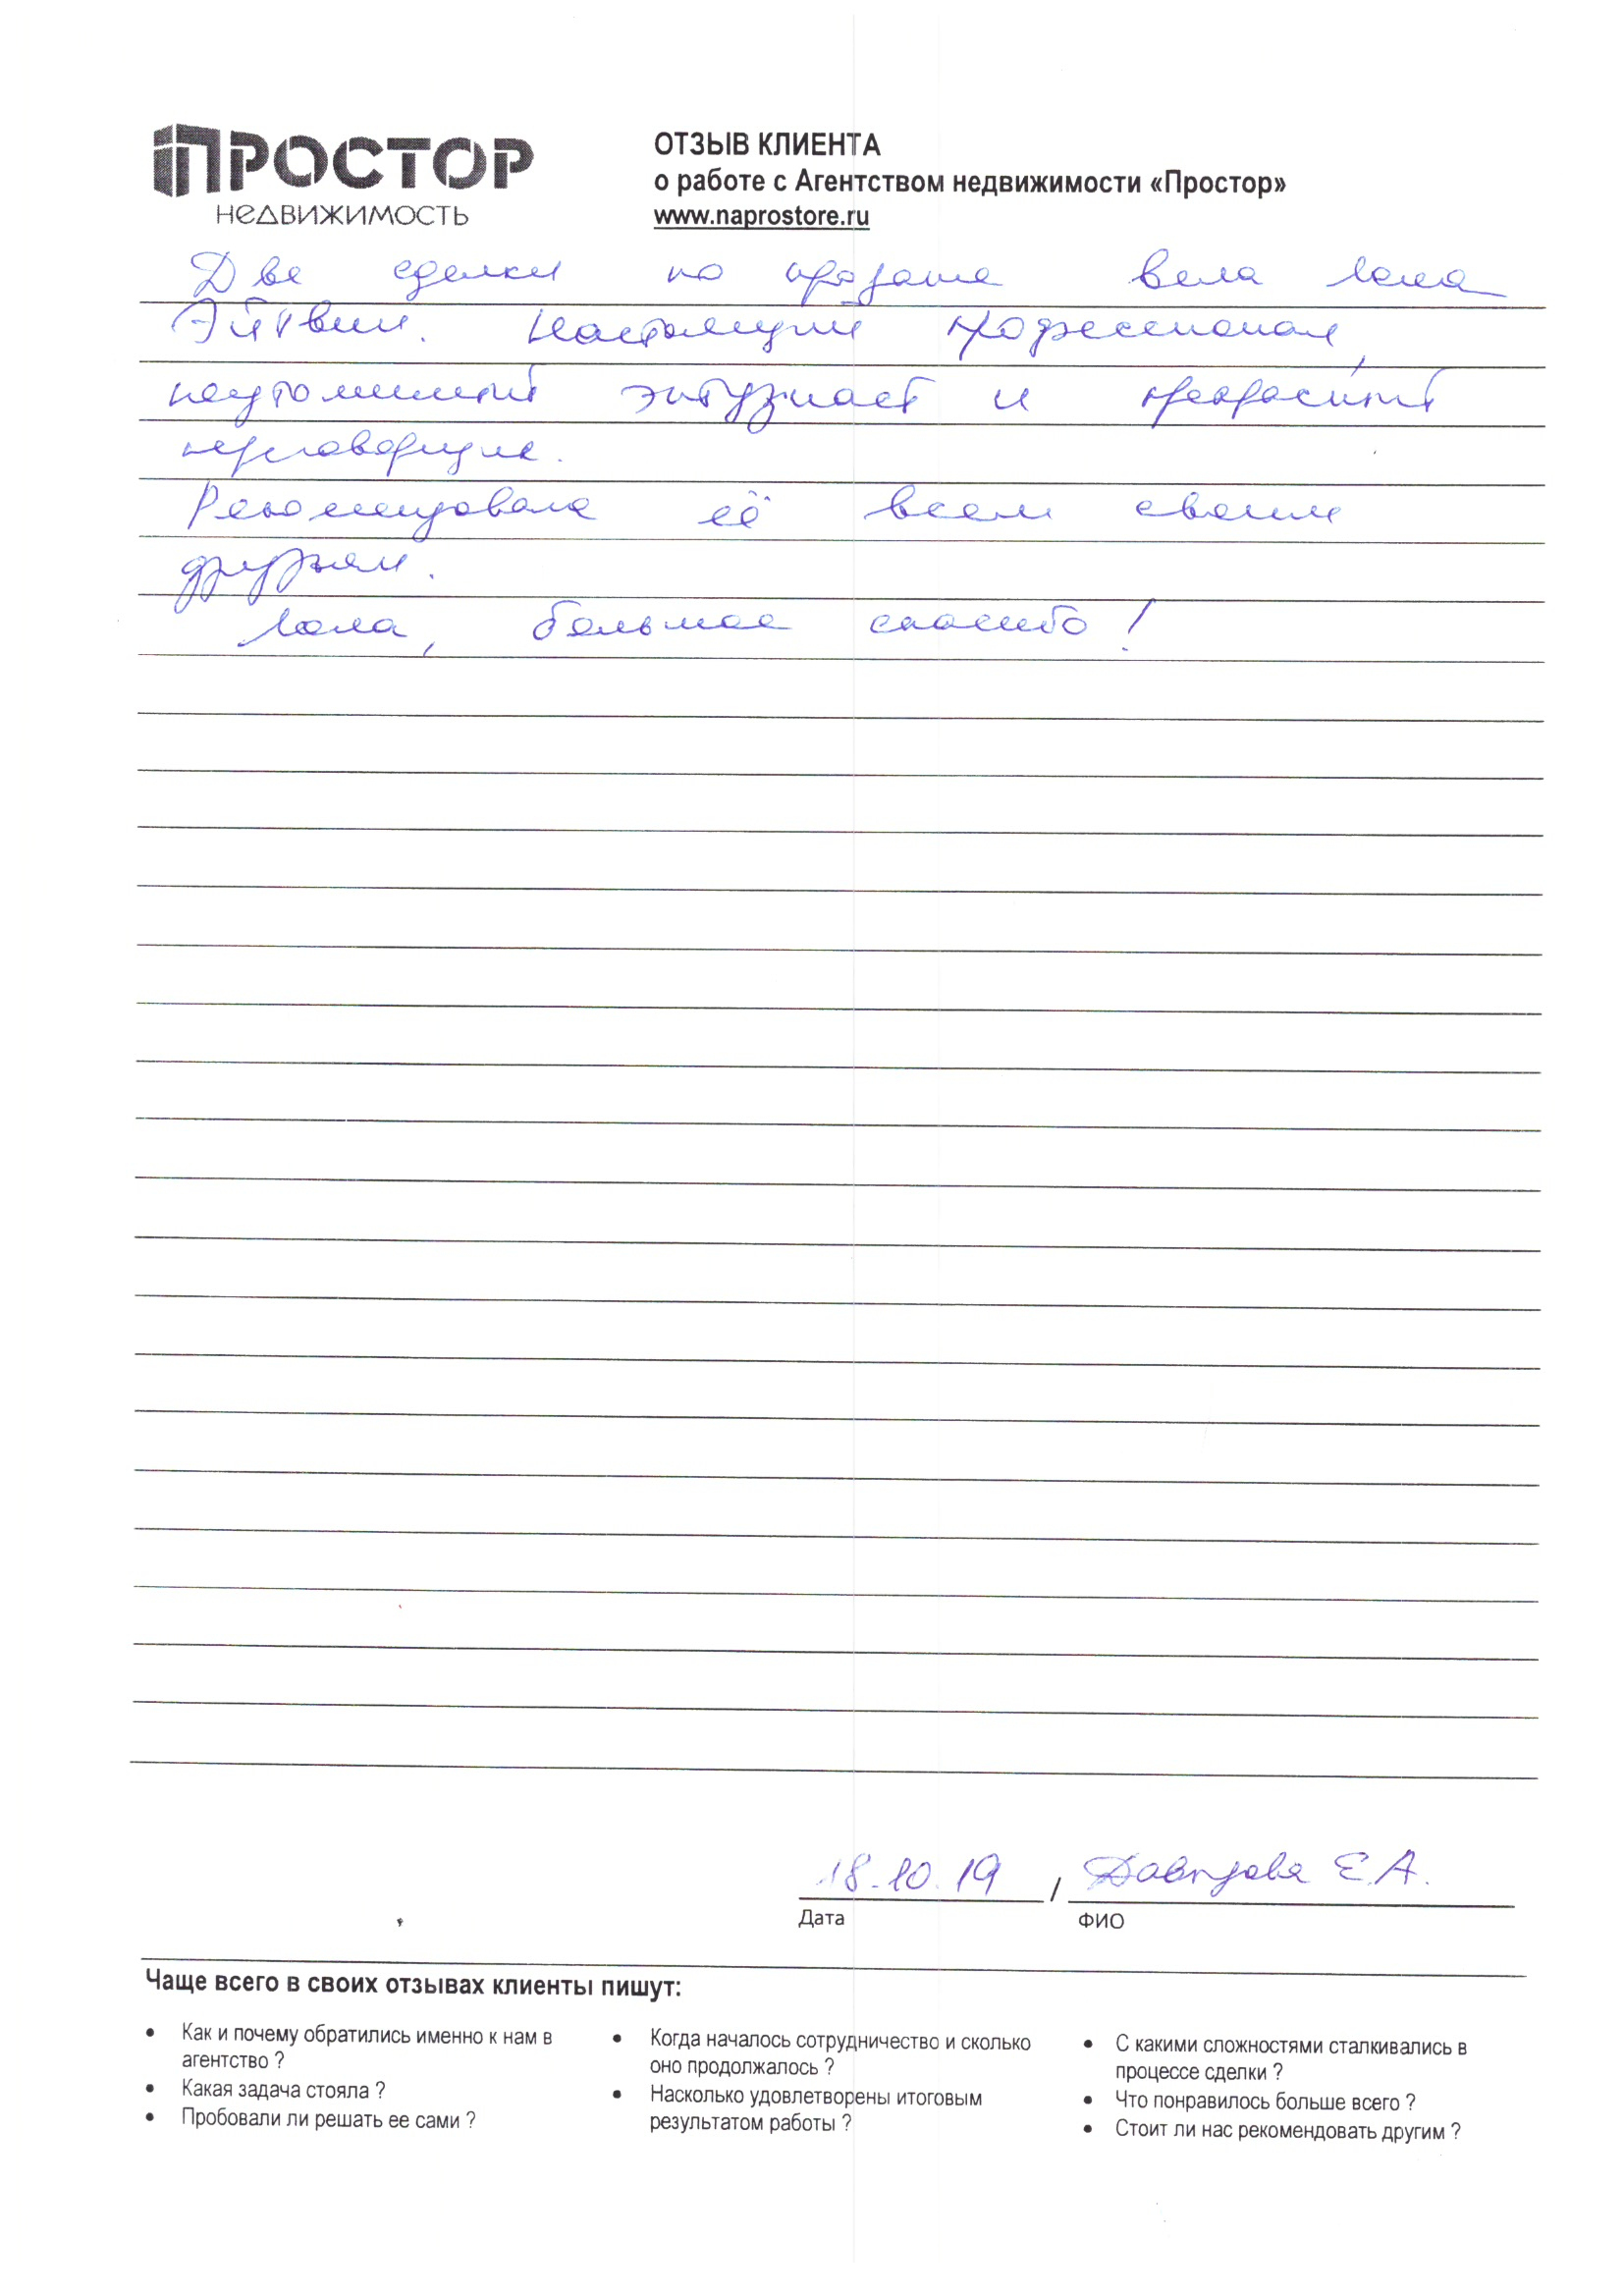 ПРОСТОР
НЕДВИЖИМОСТЬ
ОТЗЫВ КЛИЕНТА
о работе с Агентством недвижимости «Простор»
www.naprostore.ru
Две сделки по продаже вела Лола
Настоящий профессионал,
неутомимый энтузиаст и прекрасный
переговорщик.
Рекомендовала её всем своим
друзьям.
Лола, большое спасибо!
18.10.19 / Давыдова Е.А.
Дата ФИО
Чаще всего в своих отзывах клиенты пишут:
• Как и почему обратились именно к нам в
агентство ?
• Какая задача стояла ?
• Пробовали ли решать ее сами ?
• Когда началось сотрудничество и сколько
оно продолжалось ?
• Насколько удовлетворены итоговым
результатом работы ?
• С какими сложностями сталкивались в
процессе сделки ?
• Что понравилось больше всего ?
• Стоит ли нас рекомендовать другим ?